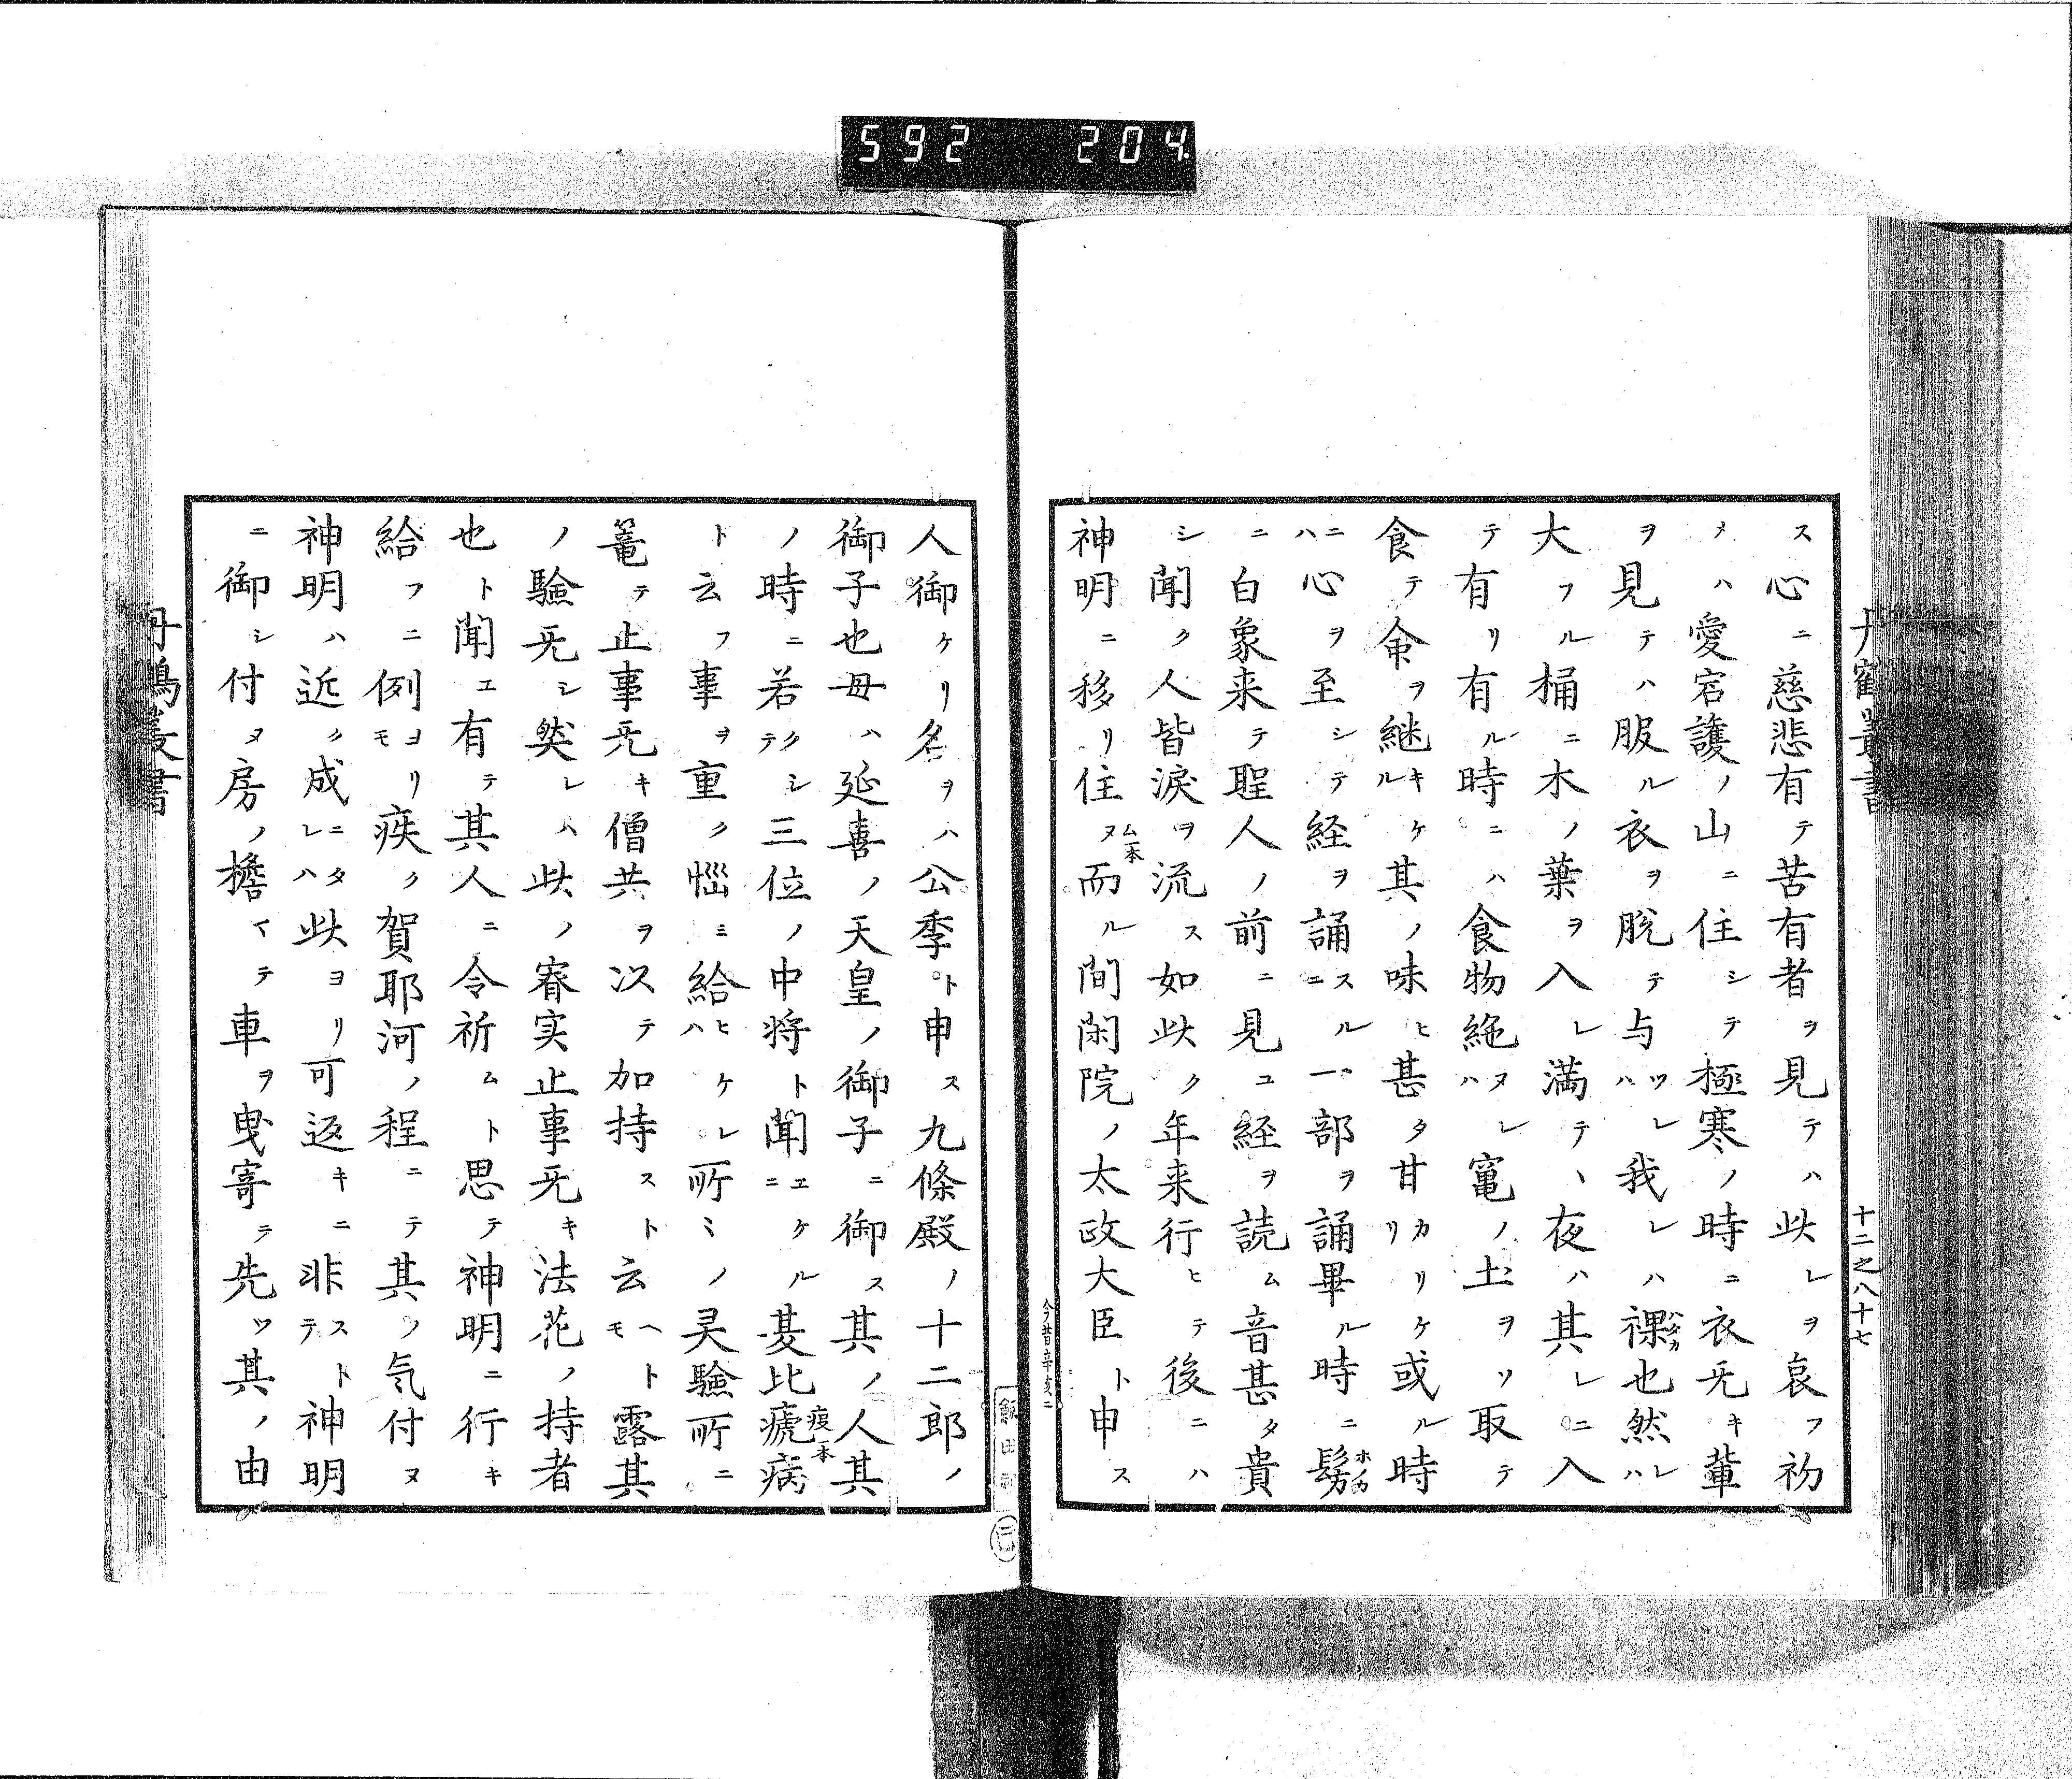 592 204
丹鶴叢書
十二之八十七
ス心ニ慈悲有テ苦有者ヲ見テハ此レヲ哀フ初
メハ愛宕護ノ山ニ住シテ極寒ノ時ニ衣旡キ輩
ヲ見テハ服ル衣ヲ脱テ与ツレハ我レハ裸ハタカ也然レハ
大フル桶ニ木ノ葉ヲ入レ満テヽ夜ハ其レニ入
テ有リ有ル時ニハ食物絶ヌレハ竃ノ土ヲソ取テ
食テ命ヲ継キケル其ノ味ヒ甚タ甘カリケリ或ル時
ニハ心ヲ至シテ経ヲ誦スルニ一部ヲ誦畢ル時ニ髣ホノカ
ニ白象来テ聖人ノ前ニ見ユ経ヲ読ム音甚タ貴
シ聞ク人皆涙ヲ流ス如此ク年来行ヒテ後ニハ
神明ニ移リ住ヌム一本而ル間閑院ノ太政大臣ト申ス
今昔辛亥二
人御ケリ名ヲハ公季ト申ス九條殿ノ十二郎ノ
御子也母ハ延喜ノ天皇ノ御子ニ御ス其ノ人其
ノ時ニ若クシテ三位ノ中将ト聞エケルニ夏比瘧病瘦一本
ト云フ事ヲ重ク悩ミ給ヒケレハ所ミノ灵験所ニ
篭テ止事旡キ僧共ヲ以テ加持スト云ヘトモ露其
ノ験旡シ然レハ此ノ睿実止事旡キ法花ノ持者
也ト聞エ有テ其人ニ令祈ムト思テ神明ニ行キ
給フニ例ヨリモ疾ク賀耶河ノ程ニテ其ノ気付ヌ
神明ハ近ク成ニタレハ此ヨリ可返キニ非ストテ神明
ニ御シ付ヌ房ノ檐マテ車ヲ曳寄テ先ツ其ノ由
丹鶴叢書